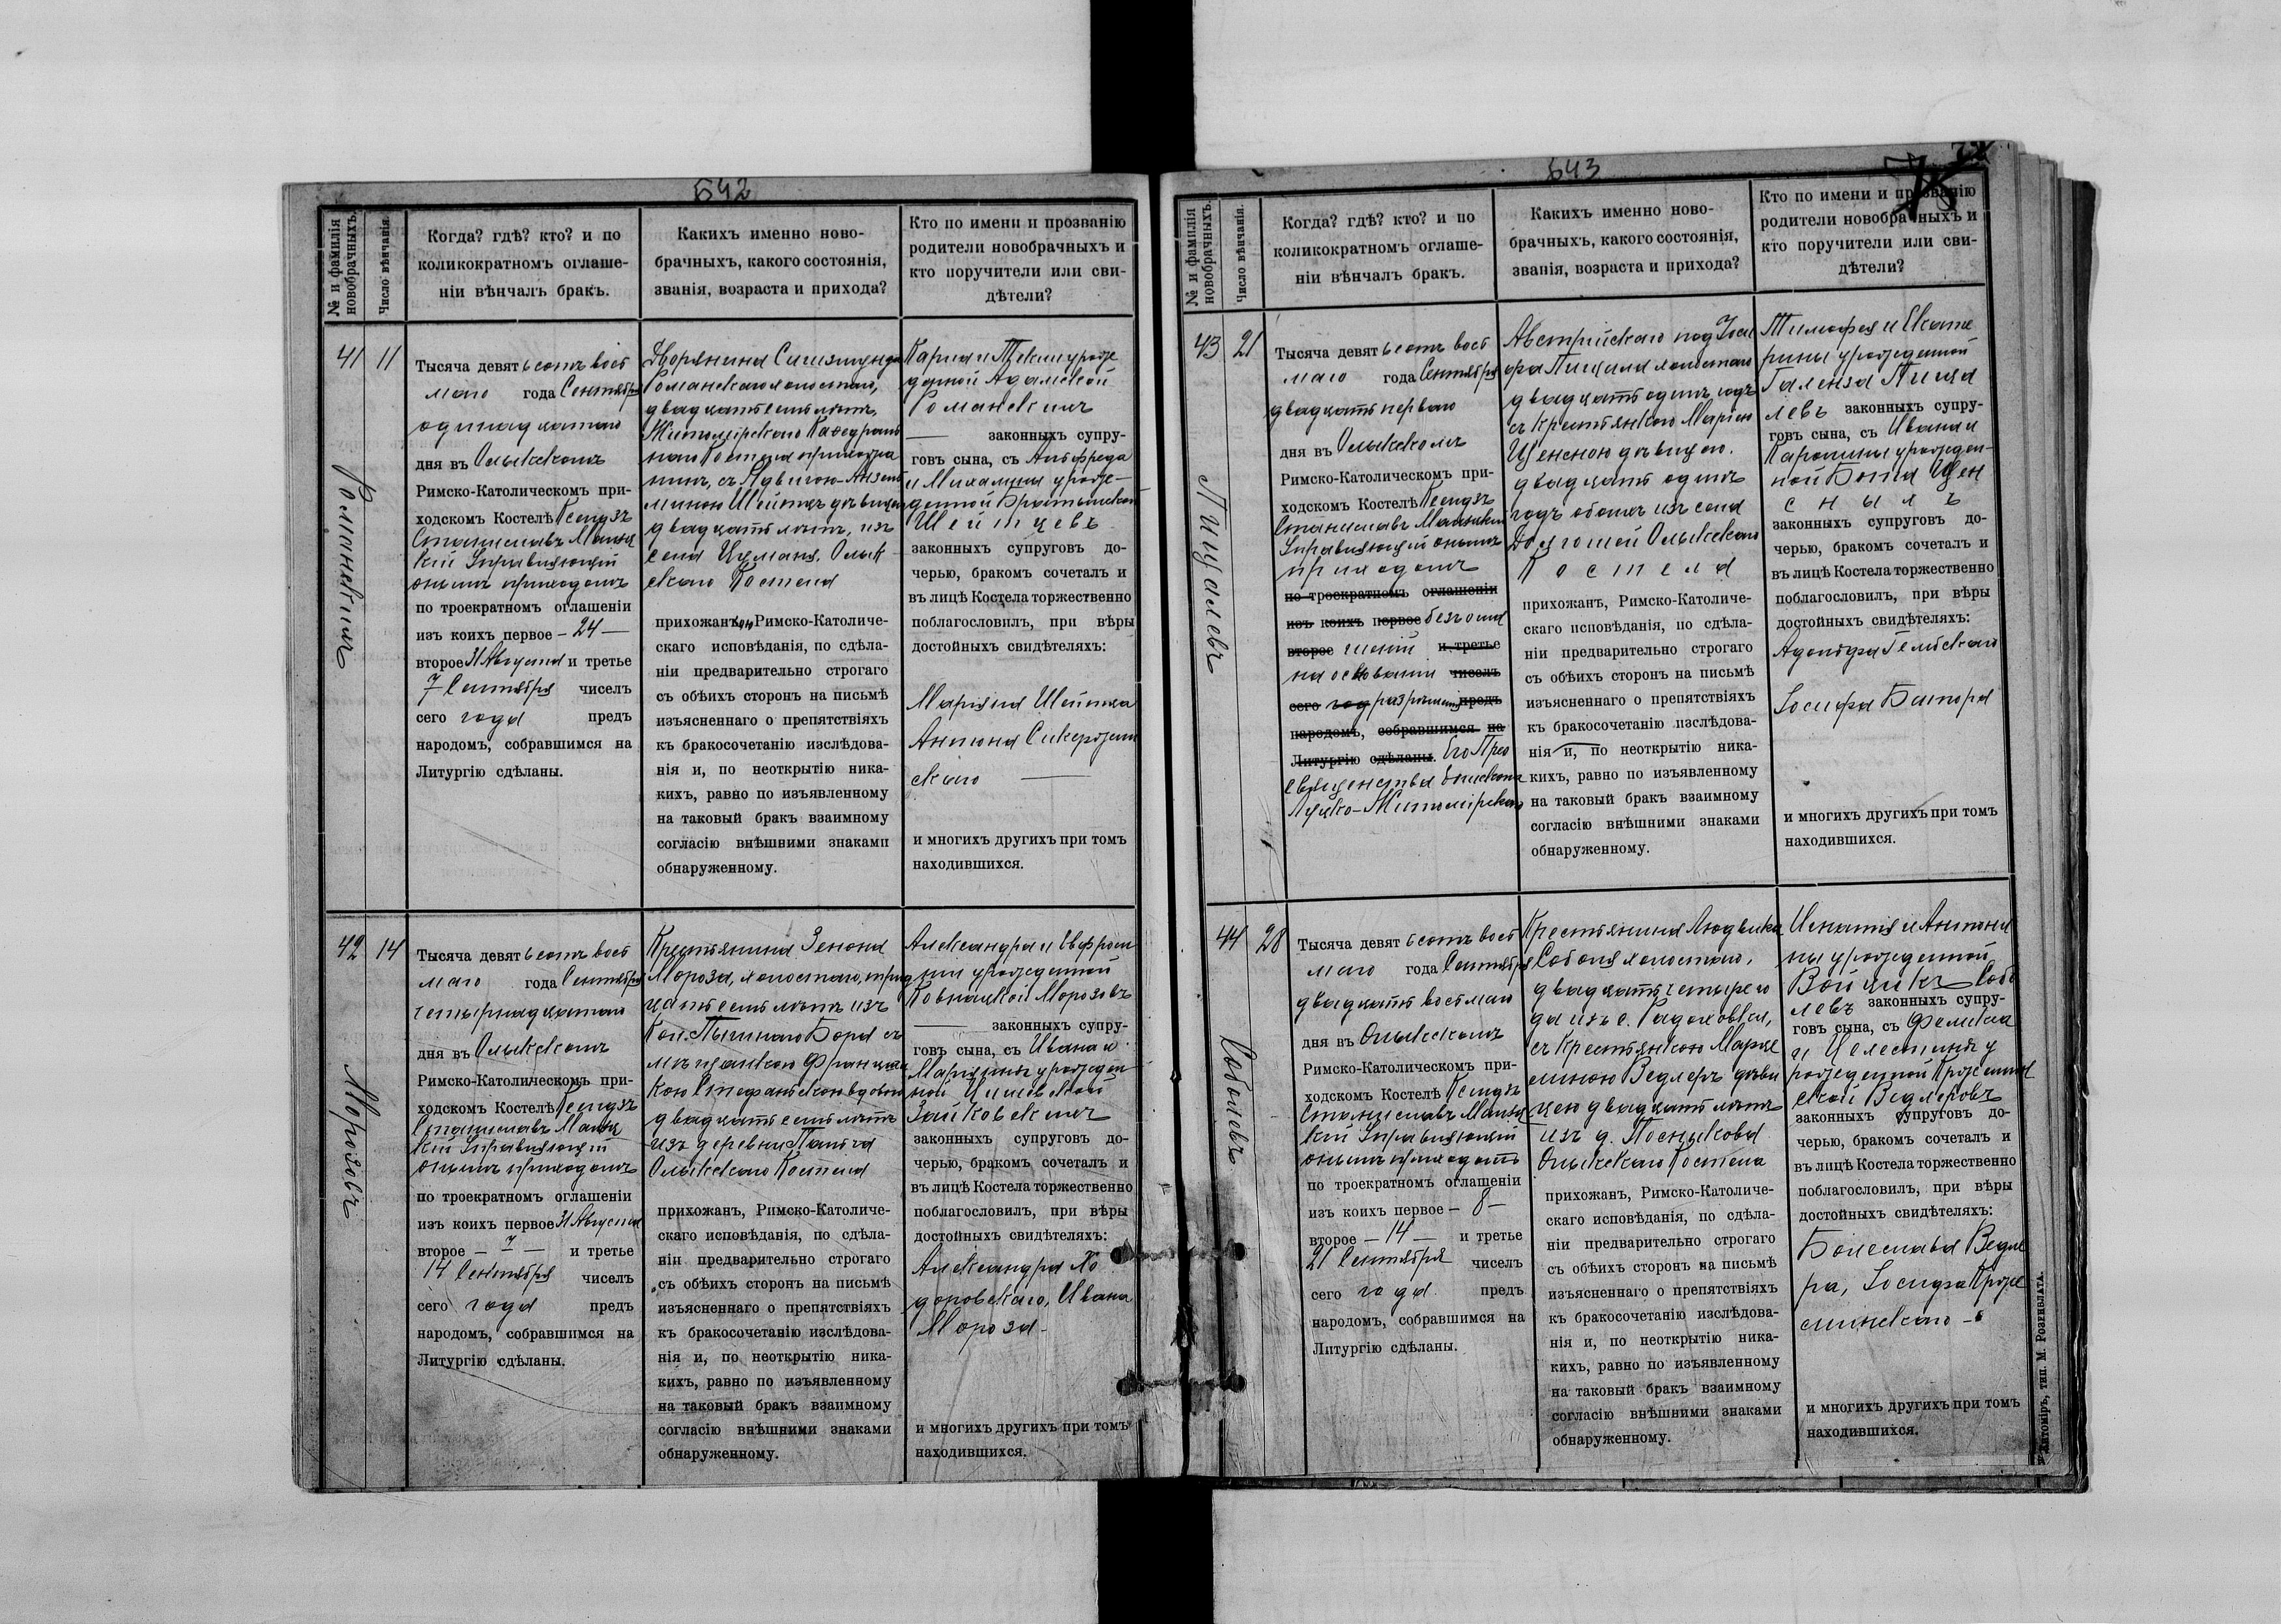 542
№ и фамилія новобрачныхъ.
Число вѣнчанія.
Когда? гдѣ? кто? и по
коликократномъ оглаше-
ніи вѣнчалъ бракъ.
Какихъ именно ново-
брачныхъ, какого состоянія,
званія, возраста и прихода?
Кто по имени и прозванію
родители новобрачныхъ и
кто поручители или сви-
дѣтели?
41
11
Романскихъ
Тысяча девятьсотъ вось
маго года Сентября
одинадцатаго
дня въ Олыкскомъ
Римско-Католическомъ при-
ходскомъ Костелѣ Ксендзъ
Станиславъ Мацк
кій Управляющій
онымъ приходомъ
по троекратномъ оглашеніи
изъ коихъ первое – 24 –
второе 31 Августа и третье
7 Сентября чиселъ
сего года предъ
народомъ, собравшимся на
Литургію сдѣланы.
Дворянина Сигизмунда
Романскаго холостаго,
двадцати семи лѣтъ,
Житомірскаго Каѳедраль
наго Костела прихожа
нина, съ Ядвигою
Шейтцъ дѣвицею
двадцати лѣтъ, изъ
села Цумань, Олык
скаго Костела
прихожанкою Римско-Католиче-
скаго исповѣданія, по сдѣла-
ніи предварительно строгаго
съ обѣихъ сторонъ на письмѣ
изъясненнаго о препятствіяхъ
къ бракосочетанію изслѣдова-
нія и, по неоткрытію ника-
кихъ, равно по изъявленному
на таковый бракъ взаимному
согласію внѣшними знаками
обнаруженному.
Карла и Теклы урож
денной Адамской
Романскихъ
законныхъ супру-
говъ сына, съ Альфреда
и Михалины урож-
денной Братковской
Шейтцевъ
законныхъ супруговъ до-
черью, бракомъ сочеталъ и
въ лицѣ Костела торжественно
поблагословилъ, при вѣры
достойныхъ свидѣтеляхъ:
Маріяна Шейтца
Антона Сикержин
скаго
и многихъ другихъ при томъ
находившихся.
42
14
Морозовъ
Тысяча девятьсотъ вось
маго года Сентября
четырнадцатаго
дня въ Олыкскомъ
Римско-Католическомъ при-
ходскомъ Костелѣ Ксендзъ
Станиславъ Мацк
кій Управляющій
онымъ приходомъ
по троекратномъ оглашеніи
изъ коихъ первое 31 Августа
второе – 7 – и третье
14 Сентября чиселъ
сего года предъ
народомъ, собравшимся на
Литургію сдѣланы.
Крестьянина Зенона
Мороза, холостаго, трид
цати семи лѣтъ изъ
Кол. Пычинаго Бора съ
мѣщанкою Францишк
кою Стефанскою вдовою
двадцати семи лѣтъ
изъ деревни Палча
Олыкскаго Костела
прихожанъ, Римско-Католиче-
скаго исповѣданія, по сдѣла-
ніи предварительно строгаго
съ обѣихъ сторонъ на письмѣ
изъясненнаго о препятствіяхъ
къ бракосочетанію изслѣдова-
нія и, по неоткрытію ника-
кихъ, равно по изъявленному
на таковый бракъ взаимному
согласію внѣшними знаками
обнаруженному.
Александра и Евфрози
ніи урожденной
Ковнацкой Морозовъ
законныхъ супру-
говъ сына, съ Ивана и
Маріянны урожден-
ной
Зайковскихъ
законныхъ супруговъ до-
черью, бракомъ сочеталъ и
въ лицѣ Костела торжественно
поблагословилъ, при вѣры
достойныхъ свидѣтеляхъ:
Александра Хо
доровскаго, Ивана
Мороза -
и многихъ другихъ при томъ
находившихся.
543
№ и фамилія новобрачныхъ.
Число вѣнчанія.
Когда? гдѣ? кто? и по
коликократномъ оглаше-
ніи вѣнчалъ бракъ.
Какихъ именно ново-
брачныхъ, какого состоянія,
званія, возраста и прихода?
Кто по имени и прозванію
родители новобрачныхъ и
кто поручители или сви-
дѣтели?
43
21
Пицалевъ
Тысяча девятьсотъ вось
маго года Сентября
двадцать перваго
дня въ Олыкскомъ
Римско-Католическомъ при-
ходскомъ Костелѣ Ксендзъ
Станиславъ Мацкій
Управляющій онымъ
приходомъ
по троекратномъ оглашеніи
изъ коихъ первое безъ огла
второе шеній и третье
на основаніи чиселъ
сего год разрѣшенія предъ
народомъ, собравшимся на
Литургію сдѣланы. Его Прео
священства Епископа
Луцко-Житомірскаго
Австрійскаго под Іоси
фа Пицала холостаго
двадцати одинъ годъ
съ крестьянкою Маріею
Щенсною дѣвицею.
двадцати одинъ
годъ обоихъ изъ села
Долгошей Олыкскаго
Костела
прихожанъ, Римско-Католиче-
скаго исповѣданія, по сдѣла-
ніи предварительно строгаго
съ обѣихъ сторонъ на письмѣ
изъясненнаго о препятствіяхъ
къ бракосочетанію изслѣдова-
нія и, по неоткрытію ника-
кихъ, равно по изъявленному
на таковый бракъ взаимному
согласію внѣшними знаками
обнаруженному.
Тимофея и Екате
рины урожденной
Галенза Пица
левъ законныхъ супру-
говъ сына, съ Ивана и
Каролины урожден-
ной Щен
сныхъ
законныхъ супруговъ до-
черью, бракомъ сочеталъ и
въ лицѣ Костела торжественно
поблагословилъ, при вѣры
достойныхъ свидѣтеляхъ:
Адольфа Гембскаго
Іосифа
и многихъ другихъ при томъ
находившихся.
44
28
Соболевъ
Тысяча девятьсотъ вось
маго года Сентября
двадцать восьмаго
дня въ Олыкскомъ
Римско-Католическомъ при-
ходскомъ Костелѣ Ксендзъ
Станиславъ Мацк
кій Управляющій
онымъ приходомъ
по троекратномъ оглашеніи
изъ коихъ первое – 8 –
второе – 14 – и третье
21 Сентября чиселъ
сего года предъ
народомъ, собравшимся на
Литургію сдѣланы.
Крестьянина Людвика
Соболя холостаго,
двадцати четыре го
да изъ с. Радоховки,
съ крестьянкою Марце
линою Ведлеръ дѣви
цею двадцати лѣтъ
изъ д. Посныкова
Олыкскаго Костела
прихожанъ, Римско-Католиче-
скаго исповѣданія, по сдѣла-
ніи предварительно строгаго
съ обѣихъ сторонъ на письмѣ
изъясненнаго о препятствіяхъ
къ бракосочетанію изслѣдова-
нія и, по неоткрытію ника-
кихъ, равно по изъявленному
на таковый бракъ взаимному
согласію внѣшними знаками
обнаруженному.
Игнатія и Антони
ны урожденной
Войцикъ Собо
левъ законныхъ супру-
говъ сына, съ Феликса
и Целестины у
рожденной Кржемин
ской Ведлеровъ
законныхъ супруговъ до-
черью, бракомъ сочеталъ и
въ лицѣ Костела торжественно
поблагословилъ, при вѣры
достойныхъ свидѣтеляхъ:
Болеслава Ведле
ра, Іосифа Крже
минскаго -
и многихъ другихъ при томъ
находившихся.
Житоміръ, тип. М. Розенблата.